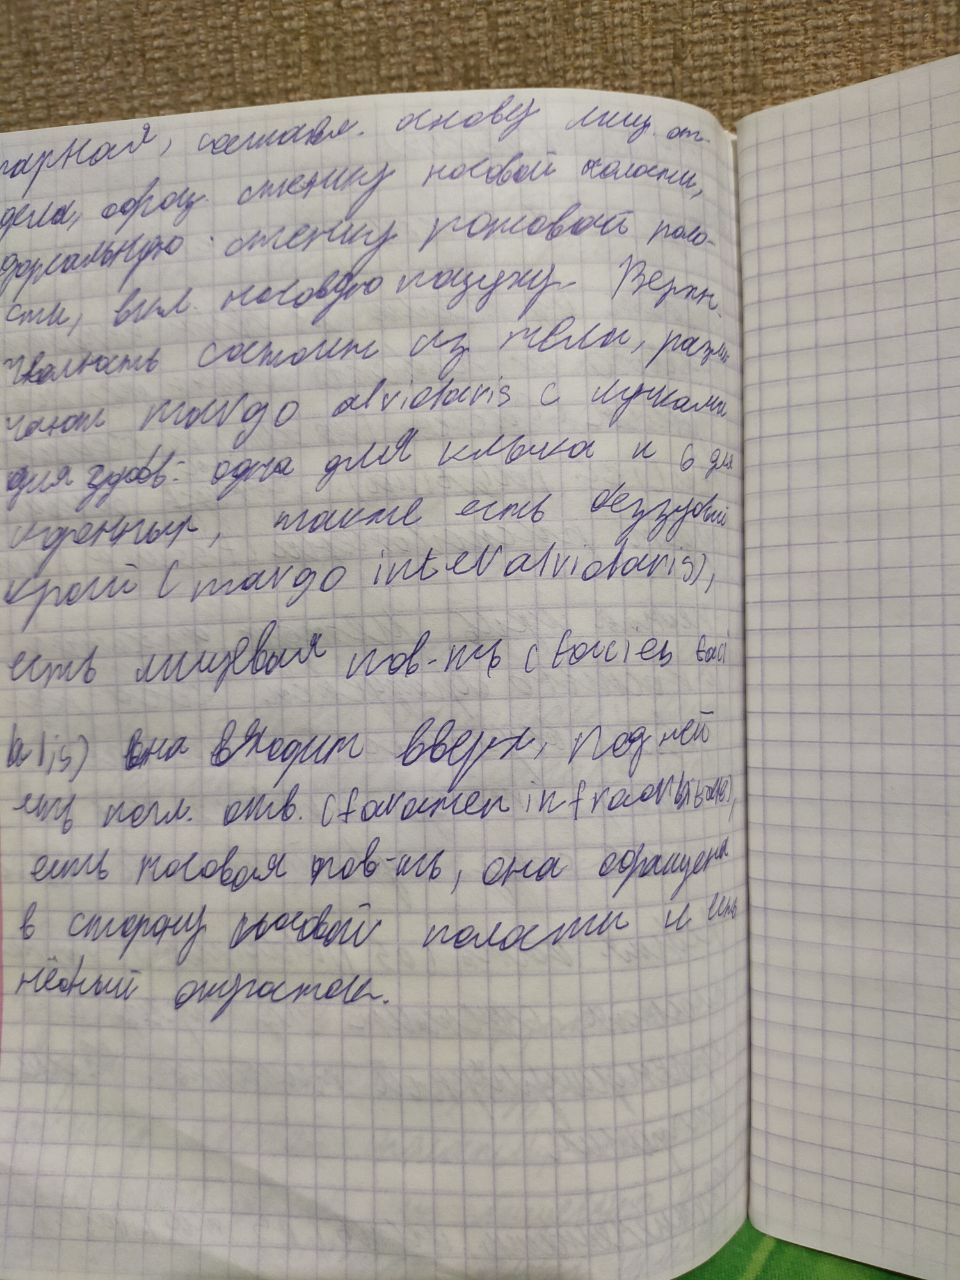 парная, составл. основу лиц. от-
дела, образ. стенку носовой полости,
дорсальную стенку ротовой поло-
сти, вкл. носовую пазуху. Верхн.
челюсть состоит из тела, разли
чают margo alviolaris с лунками
для зубов: одна для клыка и 6 для
коренных, также есть беззубый
край (margo interalviolaris),
есть лицевая пов-ть (facies faci
alis) она входит вверх, под ней
есть подгл. отв. (foramen infraorbitale),
есть носовая пов-ть, она обращена
в сторону носовой полости и есть
нёбный отросток.